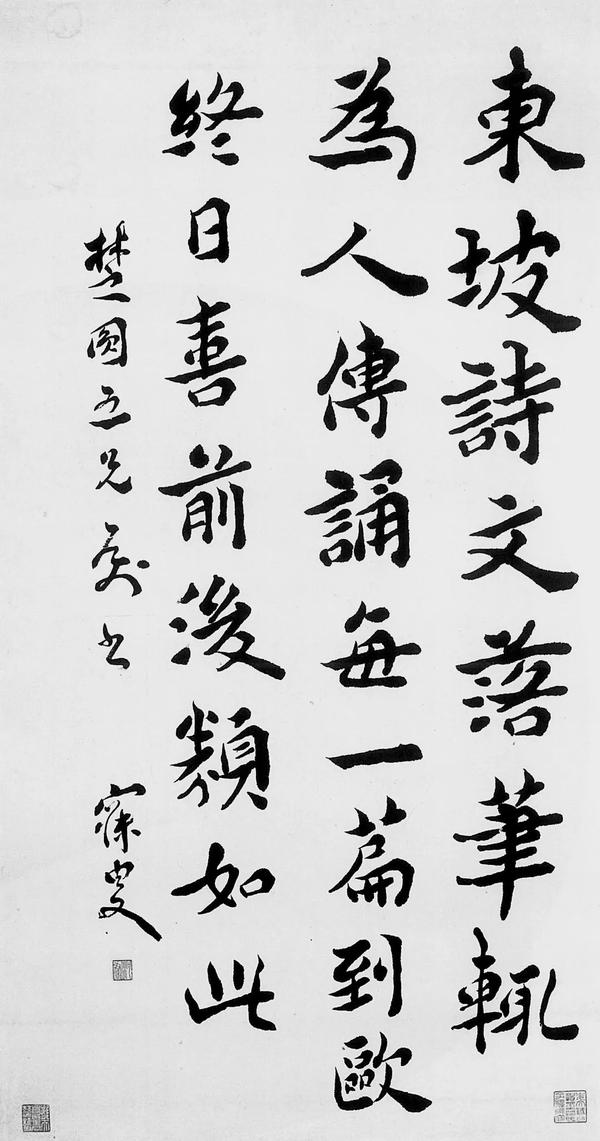 東坡詩文落筆輒
為人傳誦每一篇到歐
終日喜前後類如此
楚圓五兄屬書
寐叟